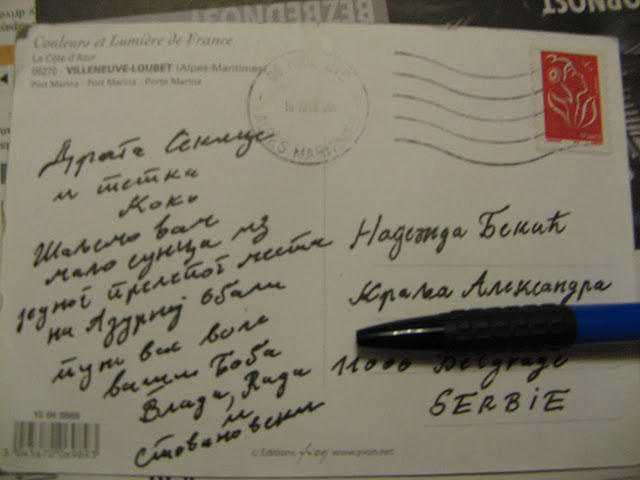 BEZBEDNOST
Couleurs et Lumière de France
La Côte d'Azur
06270 - VILLENEUVE-LOUBET (Alpes-Maritimes)
Port Marina - Port Marina - Porto Marina
ALPES MARITIMES
Драга
и тетка
Коко
Шаљемо вам
мало сунца из
једног прелепог места
на Азурној обали
пуно вас воле
ваши Боба
Влада, Рада
и
Стовановски
Надежда Бекић
Краља Александра
11000 Belgrade
SERBIE
© Editions yvon www.yvon.net